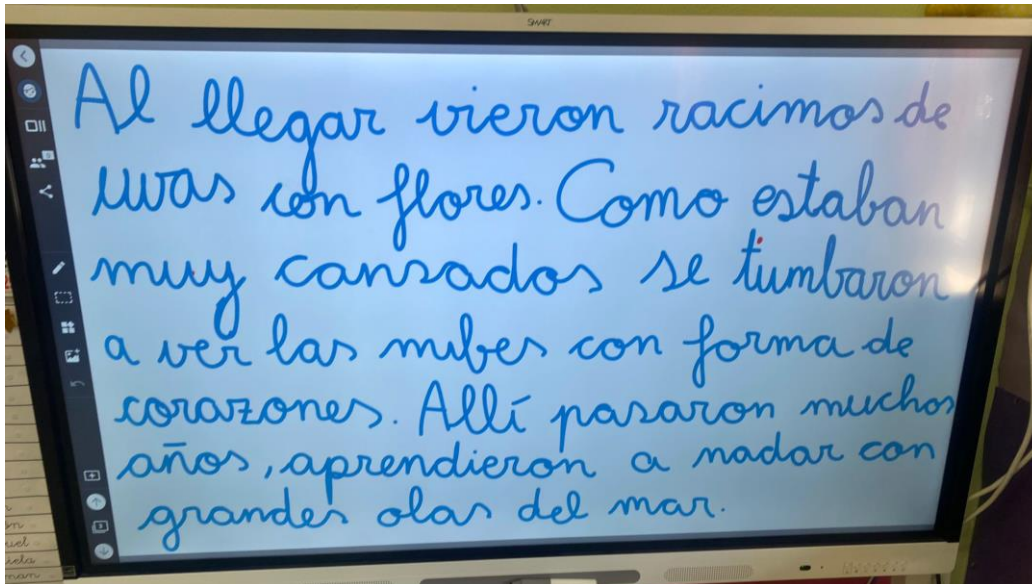 SMART
Al llegar vieron racimos de
uvas con flores. Como estaban
muy cansados se tumbaron
a ver las nubes con forma de
corazones. Allí pasaron muchos
años, aprendieron a nadar con
grandes olas del mar.